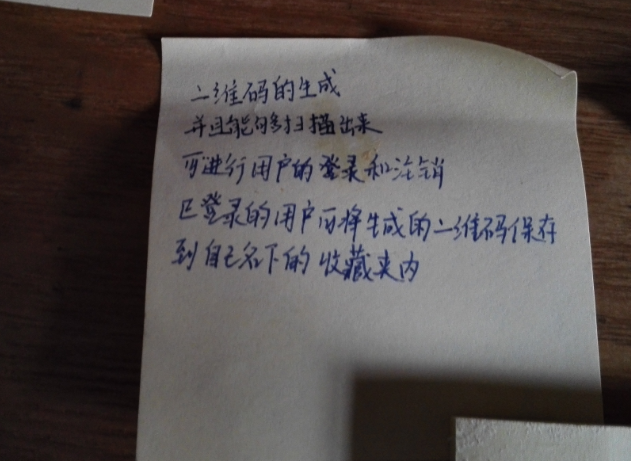 二维码的生成
并且能够扫描出来
可进行用户的登录和注销
已登录的用户可将生成的二维码保存
到自己名下的收藏夹内